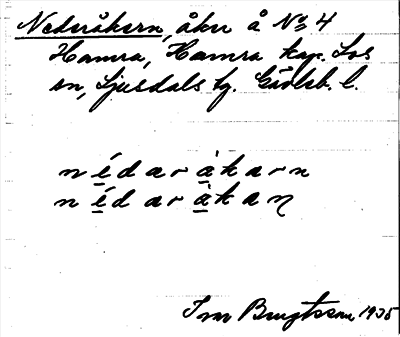 Nederåkern, åker å No 4
Hamra, Hamra kap. Los
sn, Ljusdals tg. Gävleb. l.
nédaràkarn
nédaràkaṇ
Ivar Bengtsson 1935